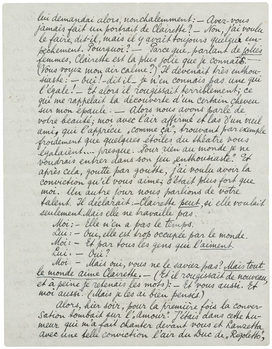 lui demandai alors, nonchalamment: — Avez-vous
jamais fait un portrait de Clairette? — Non, j'ai voulu
le faire, dit-il, mais il y a toujours quelque em-
pêchement. Pourquoi? — Parce que, parlant de jolies
femmes, Clairette est la plus jolie que je connais.
(Vous voyez mon air calme?) Il devenait très enthou-
siaste: — oui! dit-il, je n'en connais pas une qui
l'égale! — Et alors il rougissait terriblement; ce
qui me rappelait la découverte d'un certain cheveu
sur mon épaule. — Alors nous avons parlé de
votre beauté; moi avec l'air affermé et las d'un vieil
ami, qui l'apprécie, comme çà, trouvant par exemple
froidement que quelques étoiles du théâtre vous
égalaient... Pour rien au monde je ne
voudrais entrer dans son jeu enthousiaste! Et
après cela, goutte par goutte, j'ai voulu avoir la
conviction qu'il vous aime; c'était plus fort que
moi. Un autre jour nous parlions de votre
talent. Il déclarait: — Clairette peut, si elle voulait
seulement. Mais elle ne travaille pas.
Moi: — Elle n'en a pas le temps.
Lui: — Oui, elle est trop occupée par le monde.
Moi: — Et par tous les gens qui l'aiment.
Lui: — Qui?
Moi: — Mais oui, vous ne le saviez pas? Mais tout
le monde aime Clairette. — (Et il rougissait de nouveau,
et à peine je retenais les mots:) — Et vous aussi. Et
moi aussi! (Mais je les ai bien pensés!)
Alors, hier soir, pour la première fois la conver-
sation tombait sur l'Amour! J'étais dans cette hu-
meur qui m'a fait chanter devant vous et
avec une telle conviction l'air du Duc de "Rigoletto",